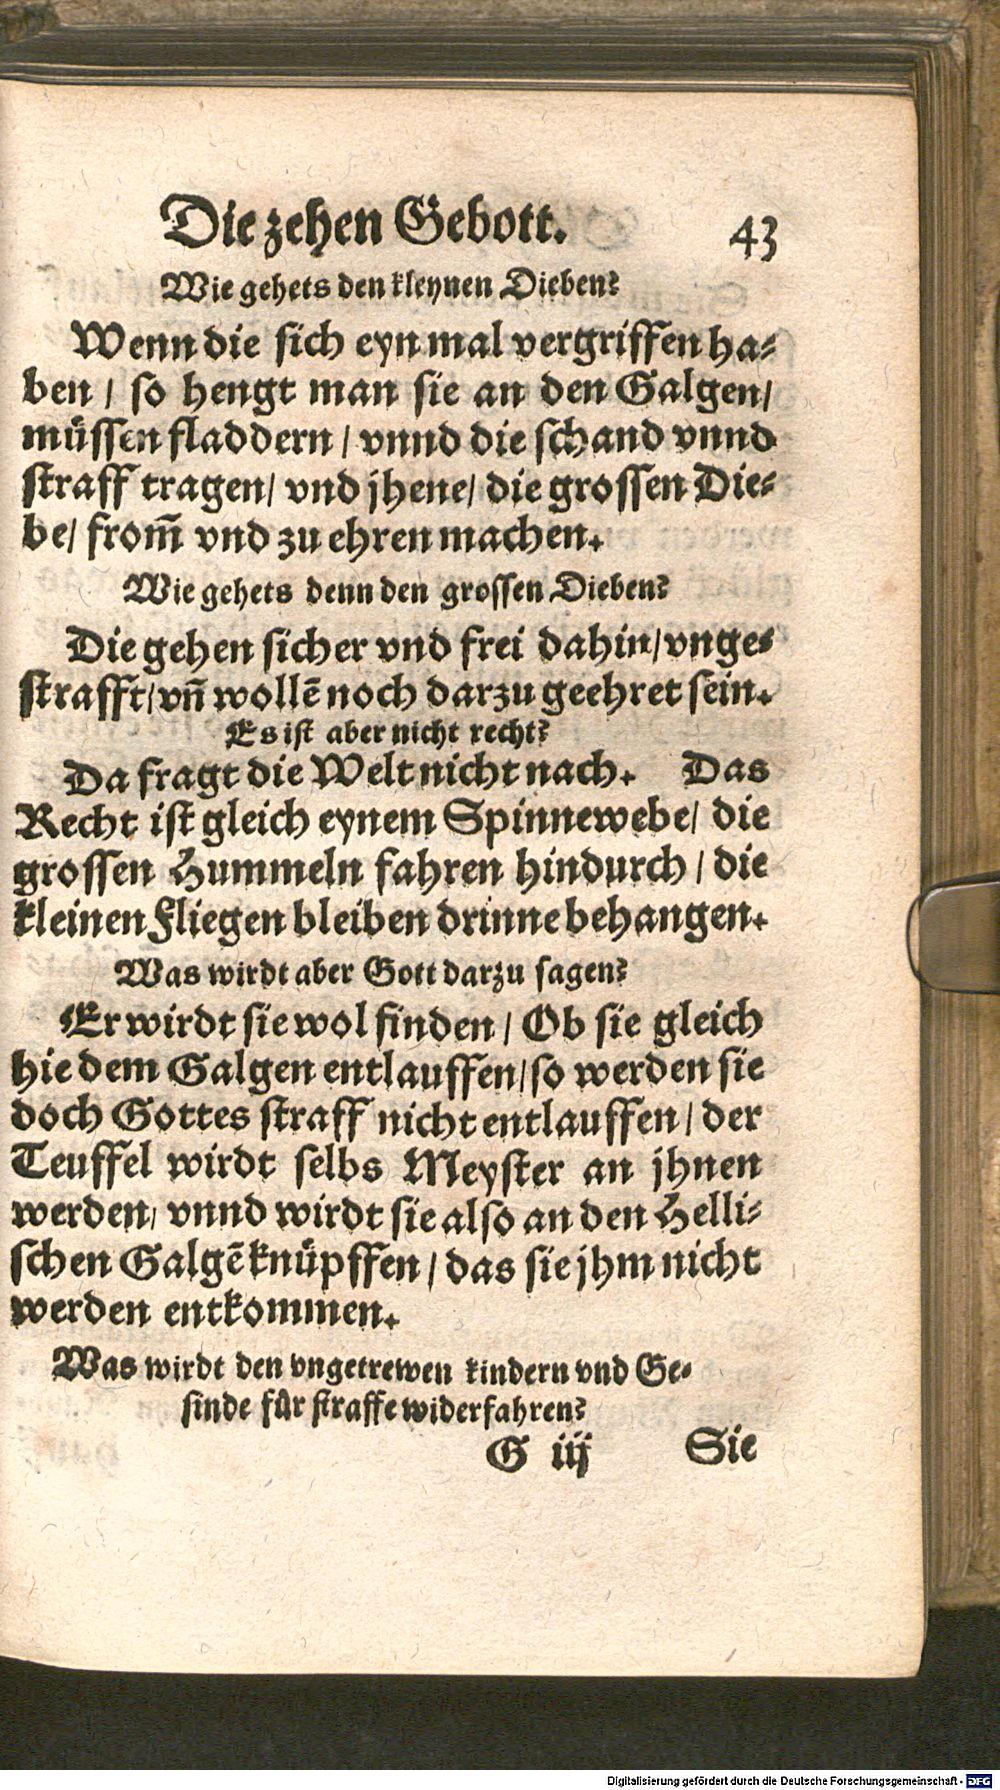 Die zehen Gebott. 43
Wie gehets den kleynen Dieben?
Wenn die sich eyn mal vergriffen ha⸗
ben / so hengt man sie an den Galgen/
müssen fladdern / vnnd die schand vnnd
straff tragen/ vnd jhene/ die grossen Die⸗
be/ from̄ vnd zu ehren machen.
Wie gehets denn den grossen Dieben?
Die gehen sicher vnd frei dahin/ vnge⸗
strafft/ vn̄ wollē noch darzu geehret sein.
Es ist aber nicht recht?
Da fragt die Welt nicht nach. Das
Recht ist gleich eynem Spinnewebe/ die
grossen Hummeln fahren hindurch / die
kleinen Fliegen bleiben drinne behangen.
Was wirdt aber Gott darzu sagen?
Er wirdt sie wol finden / Ob sie gleich
hie dem Galgen entlauffen/ so werden sie
doch Gottes straff nicht entlauffen / der
Teuffel wirdt selbs Meyster an jhnen
werden/ vnnd wirdt sie also an den Helli⸗
schen Galgē knüpffen / das sie jhm nicht
werden entkommen.
Was wirdt den vngetrewen kindern vnd Ge⸗
sinde für straffe widerfahren?
G iij Sie
Digitalisierung gefördert durch die Deutsche Forschungsgemeinschaft - DFG